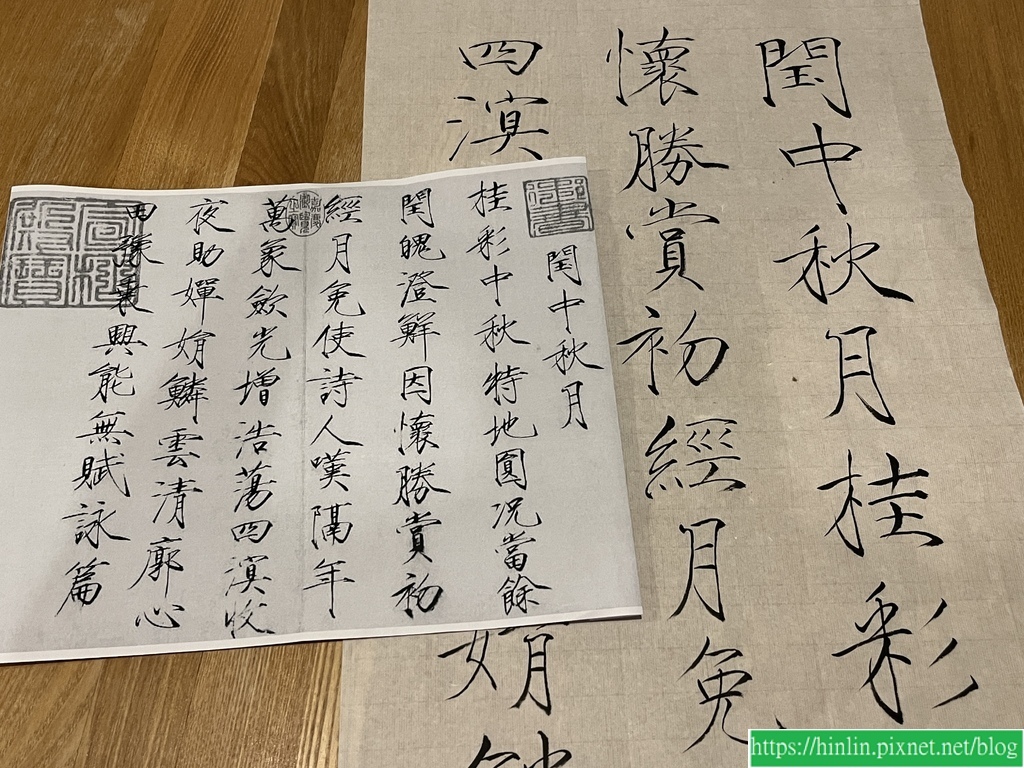 閏中秋月桂彩
懷勝賞初經月免
四溟
娟
閏中秋月
桂彩中秋特地圓况當餘
閏魄澄鮮因懷勝賞初
經月免使詩人嘆隔年
萬象斂光增浩蕩四溟收
夜助嬋娟鱗雲清廓心
田豫乘興能無賦詠篇
https://hinlin.pixnet.net/blog